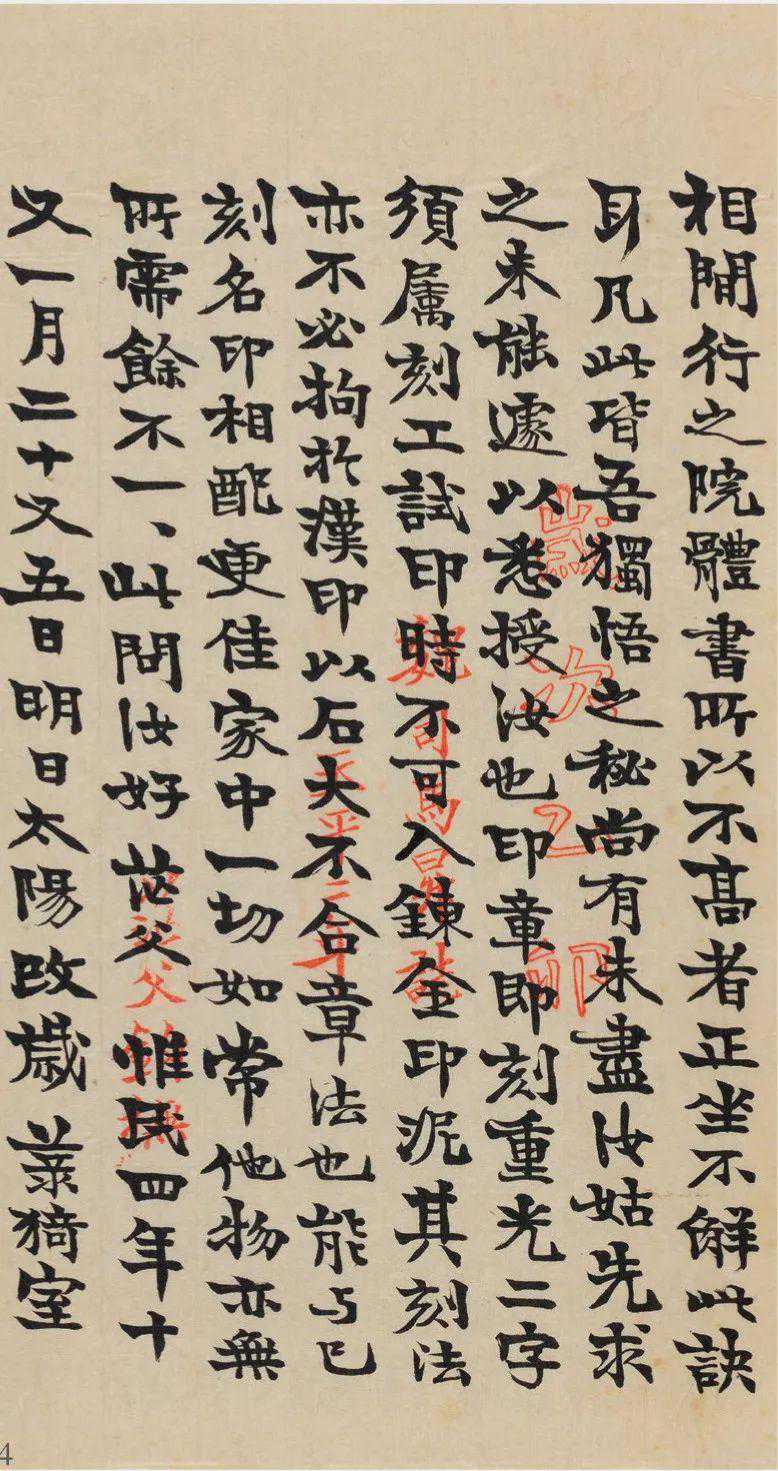 相間行之院體書所以不高者正坐不解此訣
耳凡此皆吾獨悟之秘尚有未盡汝姑先求
之未能遽以悉授汝也印章即刻重光二字
須屬刻工試印時不可入鍊金印泥其刻法
亦不必拘於漢印以石大不合章法也能与已
刻名印相配更佳家中一切如常他物亦無
所需餘不一、此問汝好 茫父 惟民四年十
又一月二十又五日明日太陽改歲 菉猗室
歲次乙卯
4